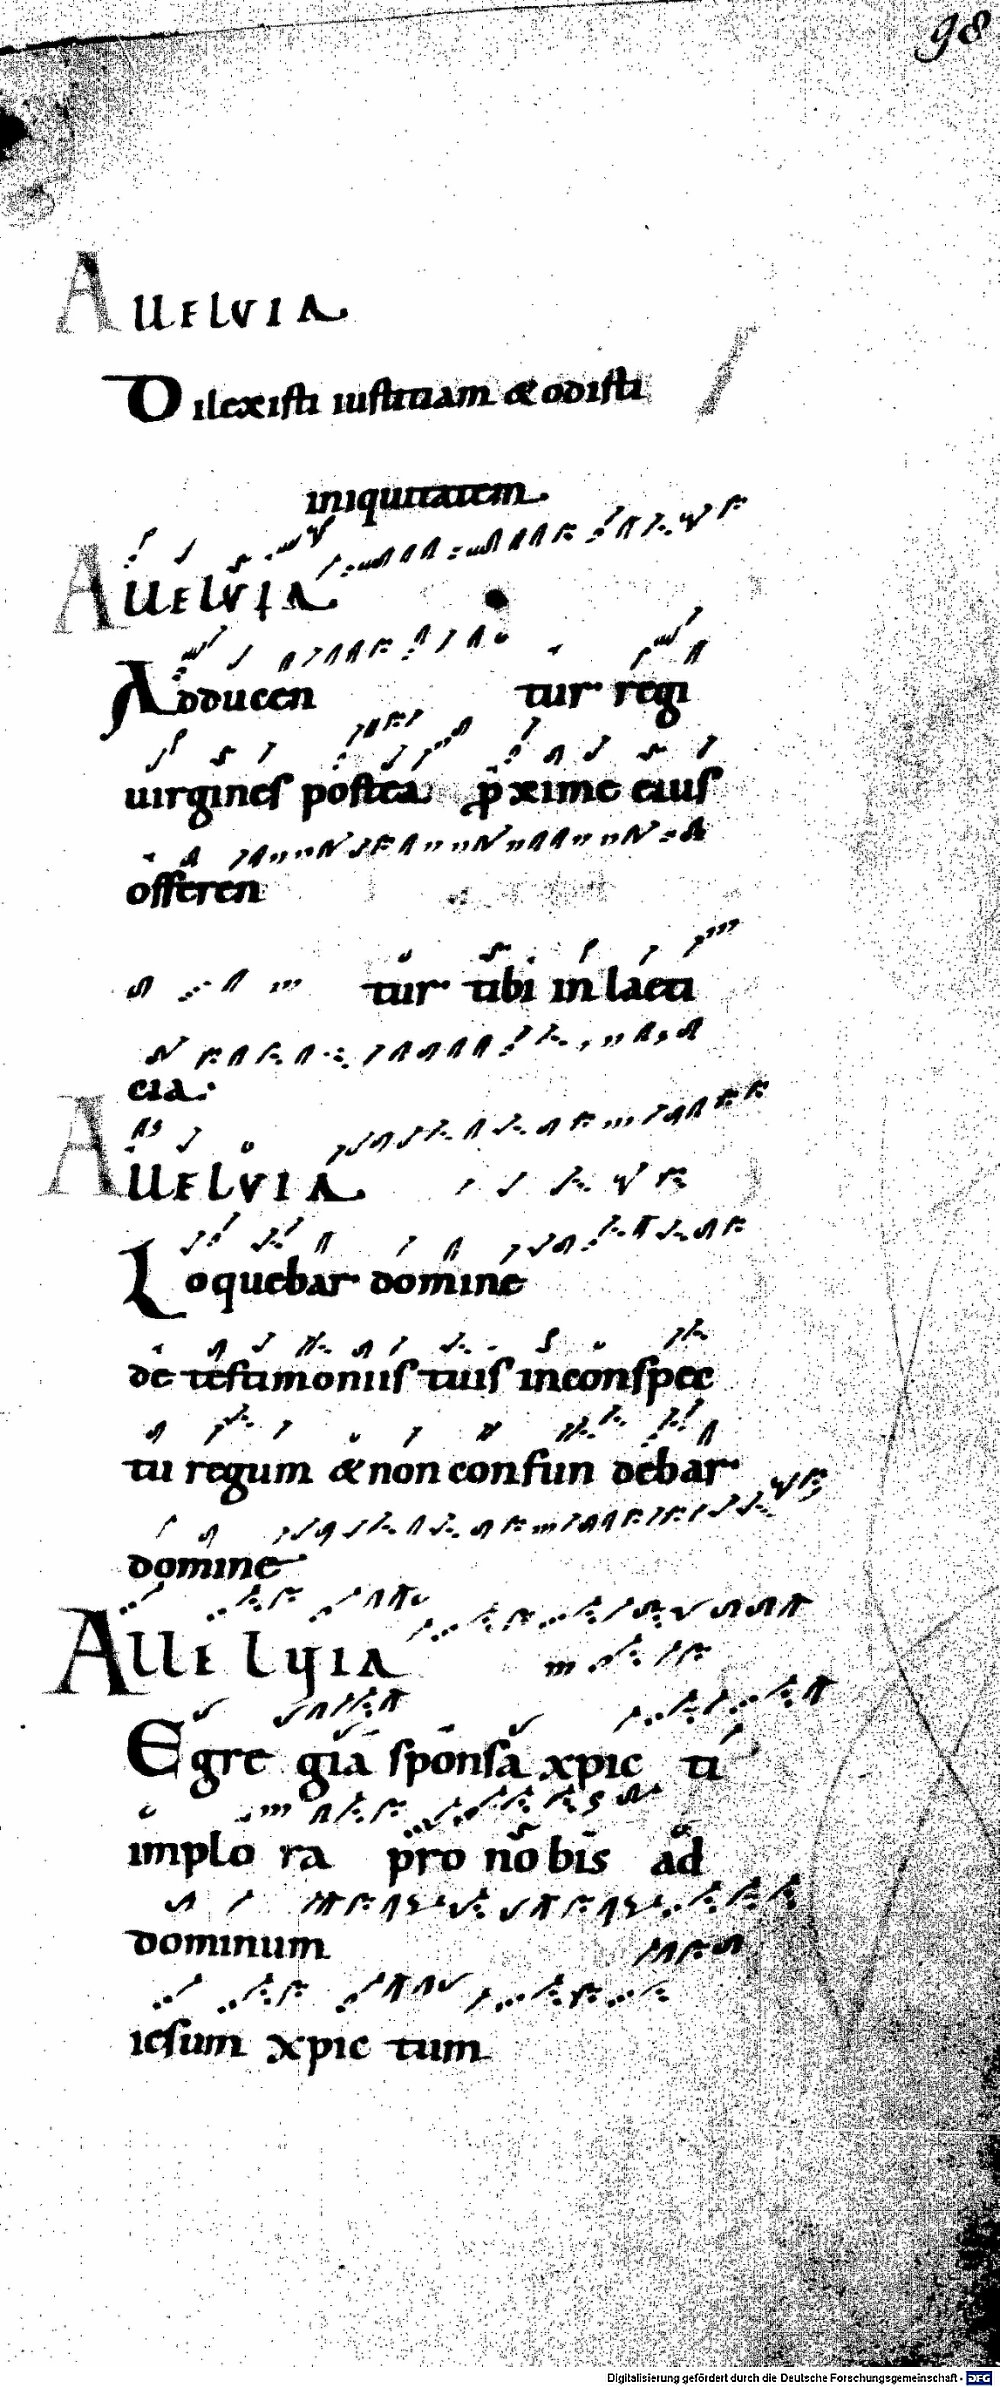 98
AllELVIA
Dilexisti iustitiam & odisti
iniquitatem.
AllELVIA
Adducen tur regi
uirgines postea p̄xime eius
offeren
tur tibi in laeti
cia.
AllELVIA
Loquebar domine
de testimoniis tuis inconspec
tu regum & non confun debar
domine
AllELyIA
Egre gia sponsa xpic ti
implo ra pro nobis ad
dominum
iesum xpic tum
Digitalisierung gefördert durch die Deutsche Forschungsgemeinschaft - DFG